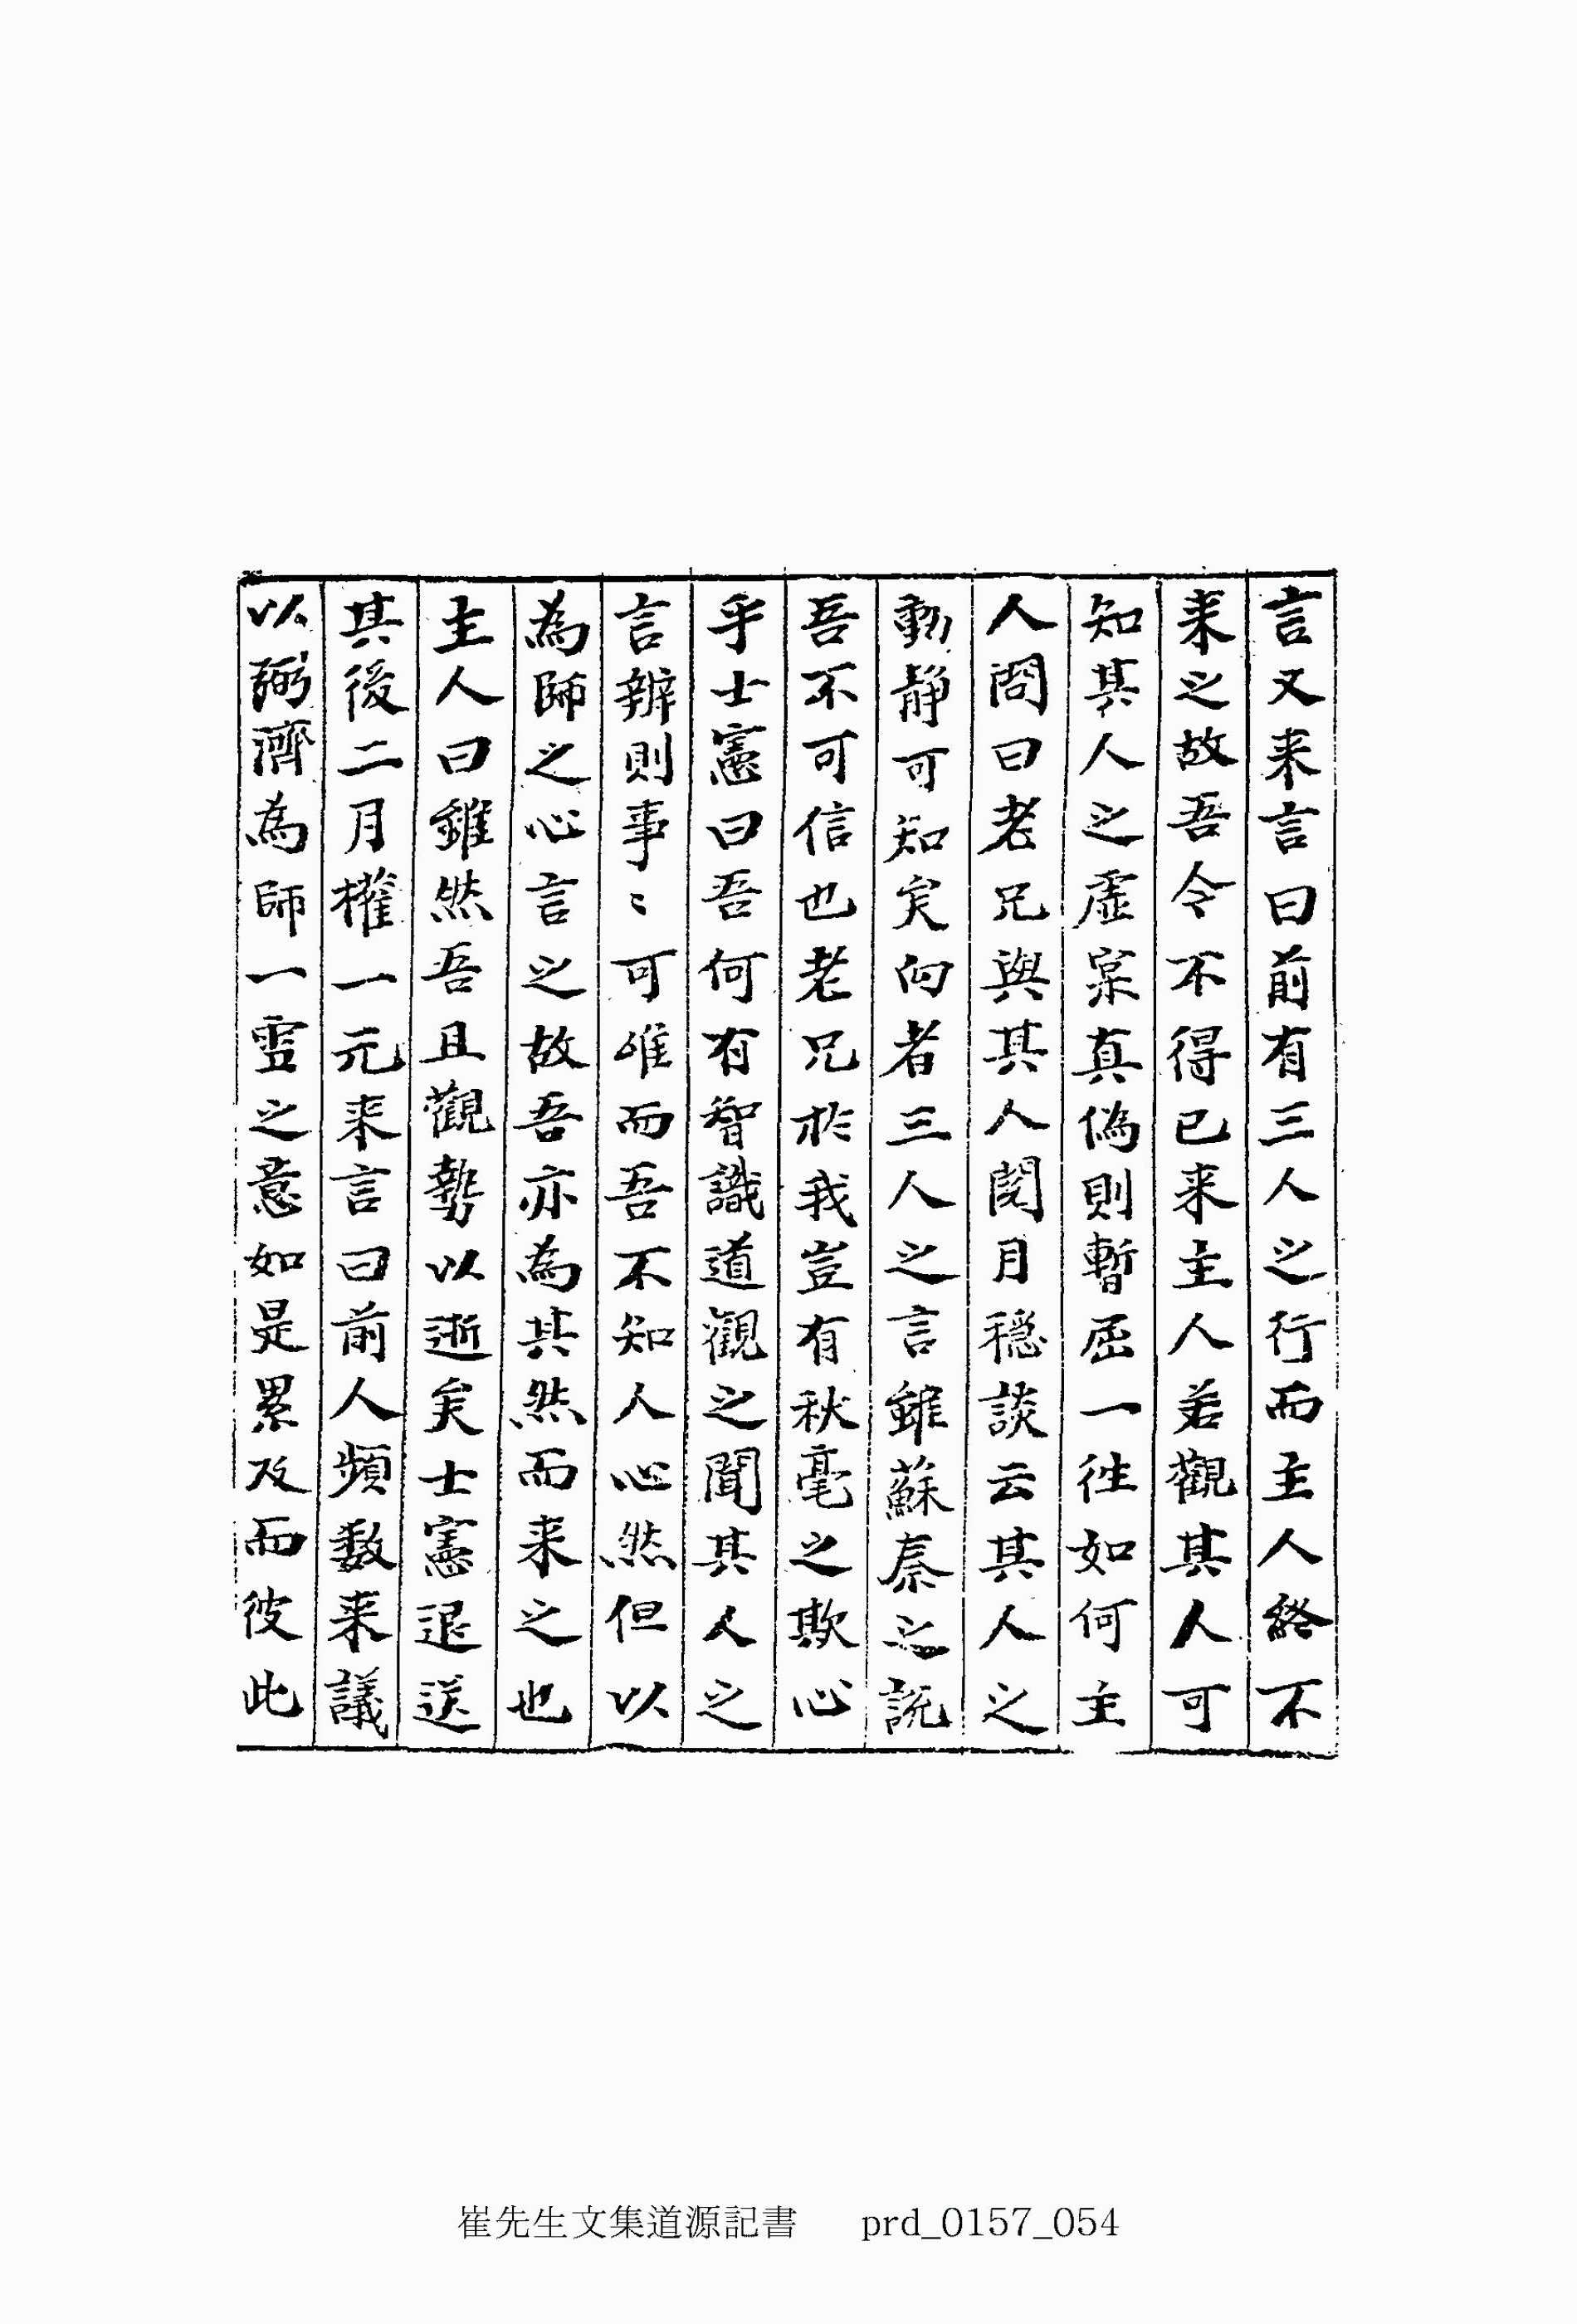 言又来言曰前有三人之行而主人終不
来之故吾今不得已来主人若觀其人可
知其人之虛案真偽則暫屈一徃如何主
人問曰老兄與其人閱月穏談云其人之
動静可知矣向者三人之言雖蘇秦之說
吾不可信也老兄於我豈有秋毫之欺心
乎士憲曰吾何有智識道觀之聞其人之
言辦則事〻可唯而吾不知人心然但以
為師之心言之故吾亦為其然而来之也
主人曰雖然吾且觀勢以逝矣士憲退送
其後二月權一元来言曰前人頻數来議
以弼濟為師一灵之意如是累及而彼此
崔先生文集道源記書 prd_0157_054